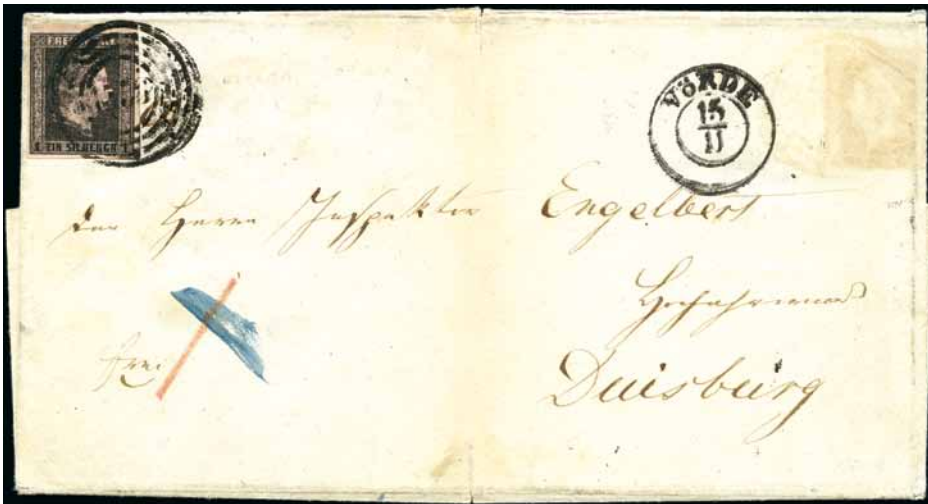 FREI
1 EIN SILBERGR 1
VÖRDE
15
11
Herrn Inspektor Engelbert
Duisburg
frei